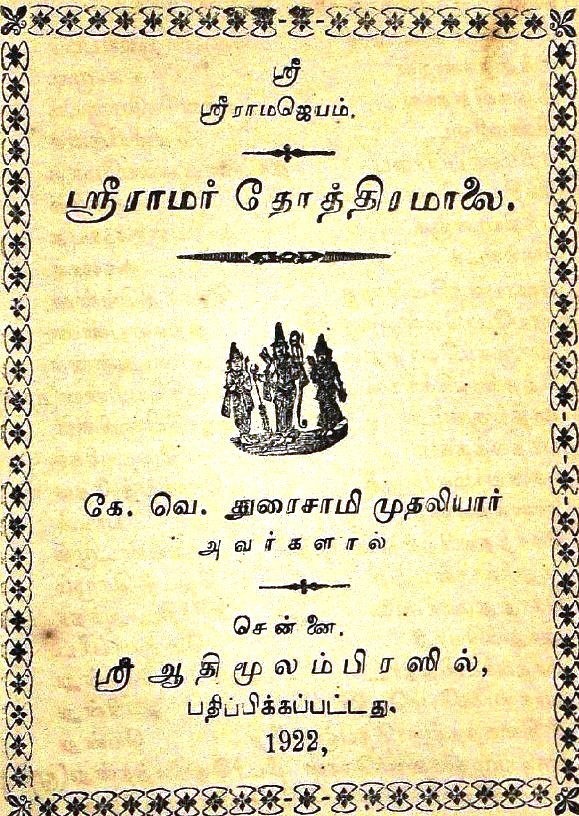 ஸ்ரீ
ஸ்ரீராமஜெயம்.
ஸ்ரீராமர் தோத்திரமாலை.
கே. வெ. துரைசாமி முதலியார்
அவர்களால்
சென்னை,
ஸ்ரீ ஆதிமூலம்பிரஸில்,
பதிப்பிக்கப்பட்டது.
1922,